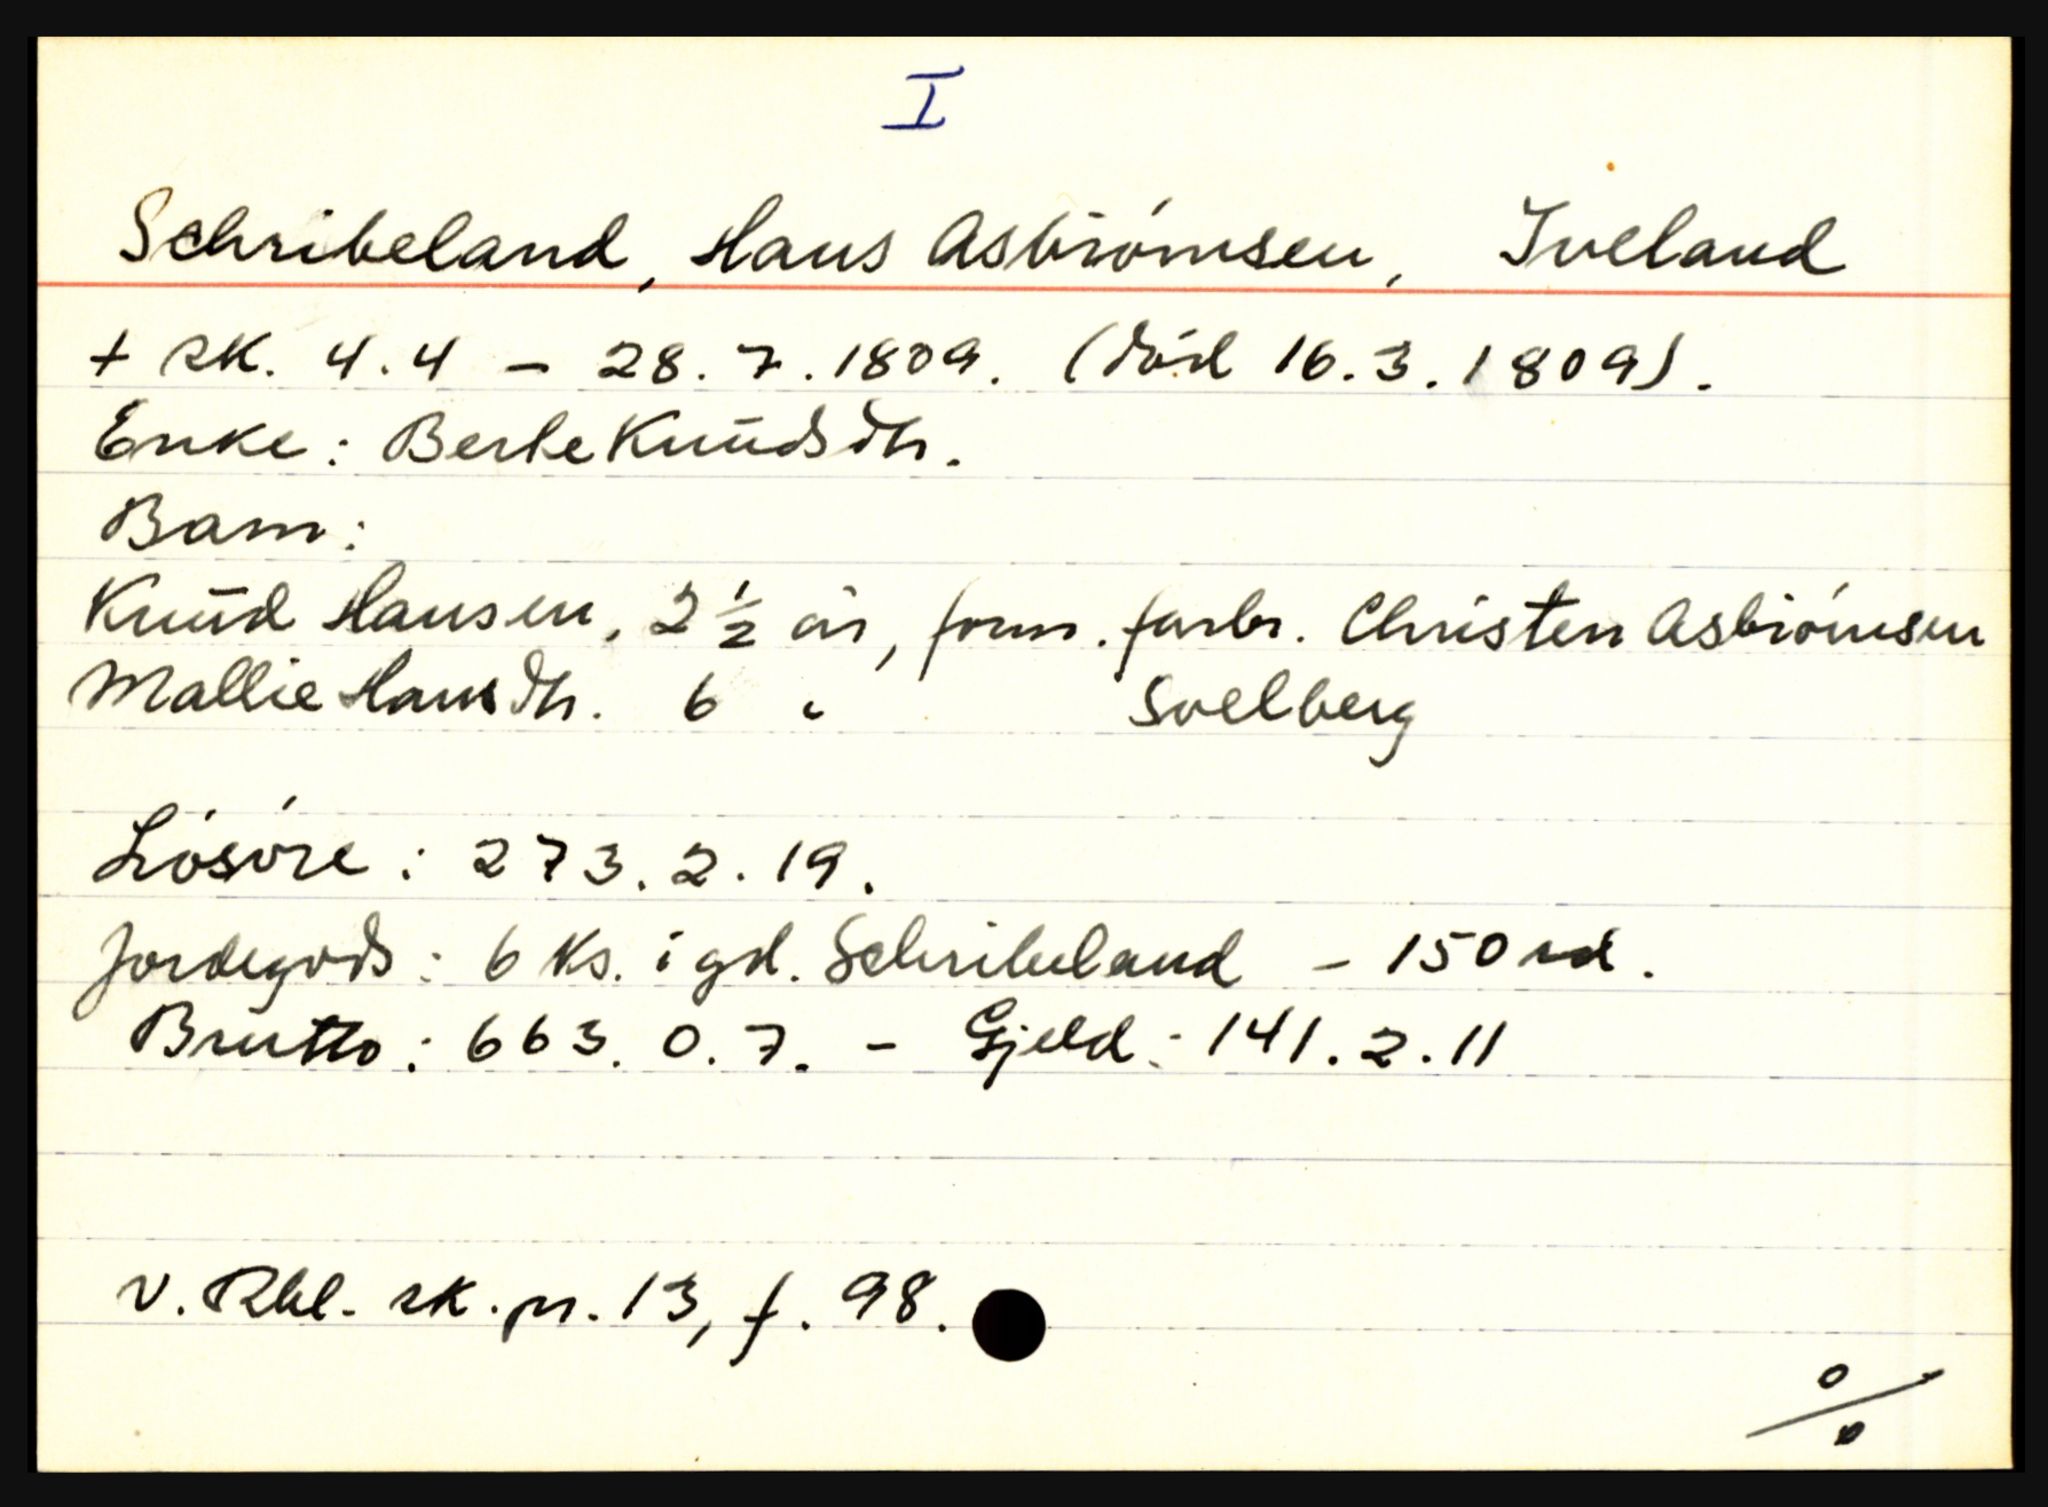 I
Schribeland, Hans Asbiörnsen, Iveland
+ sk. 4.4 – 28.7.1809. (död 16.3.1809).
Enke: Berte Knudsdtr.
Barn:
Knud Hansen, 2 1/2 år, form. farbr. Christen Asbiörnsen
Mallie Hansdtr. 6 " Svelberg
Lösöre: 273.2.19.
Jordegods: 6 ks. i gd. Schribeland – 150 rd.
Brutto: 663.0.7. – Gjeld: 141.2.11
V. Rbl. sk. pr. 13, f. 98.
o/o